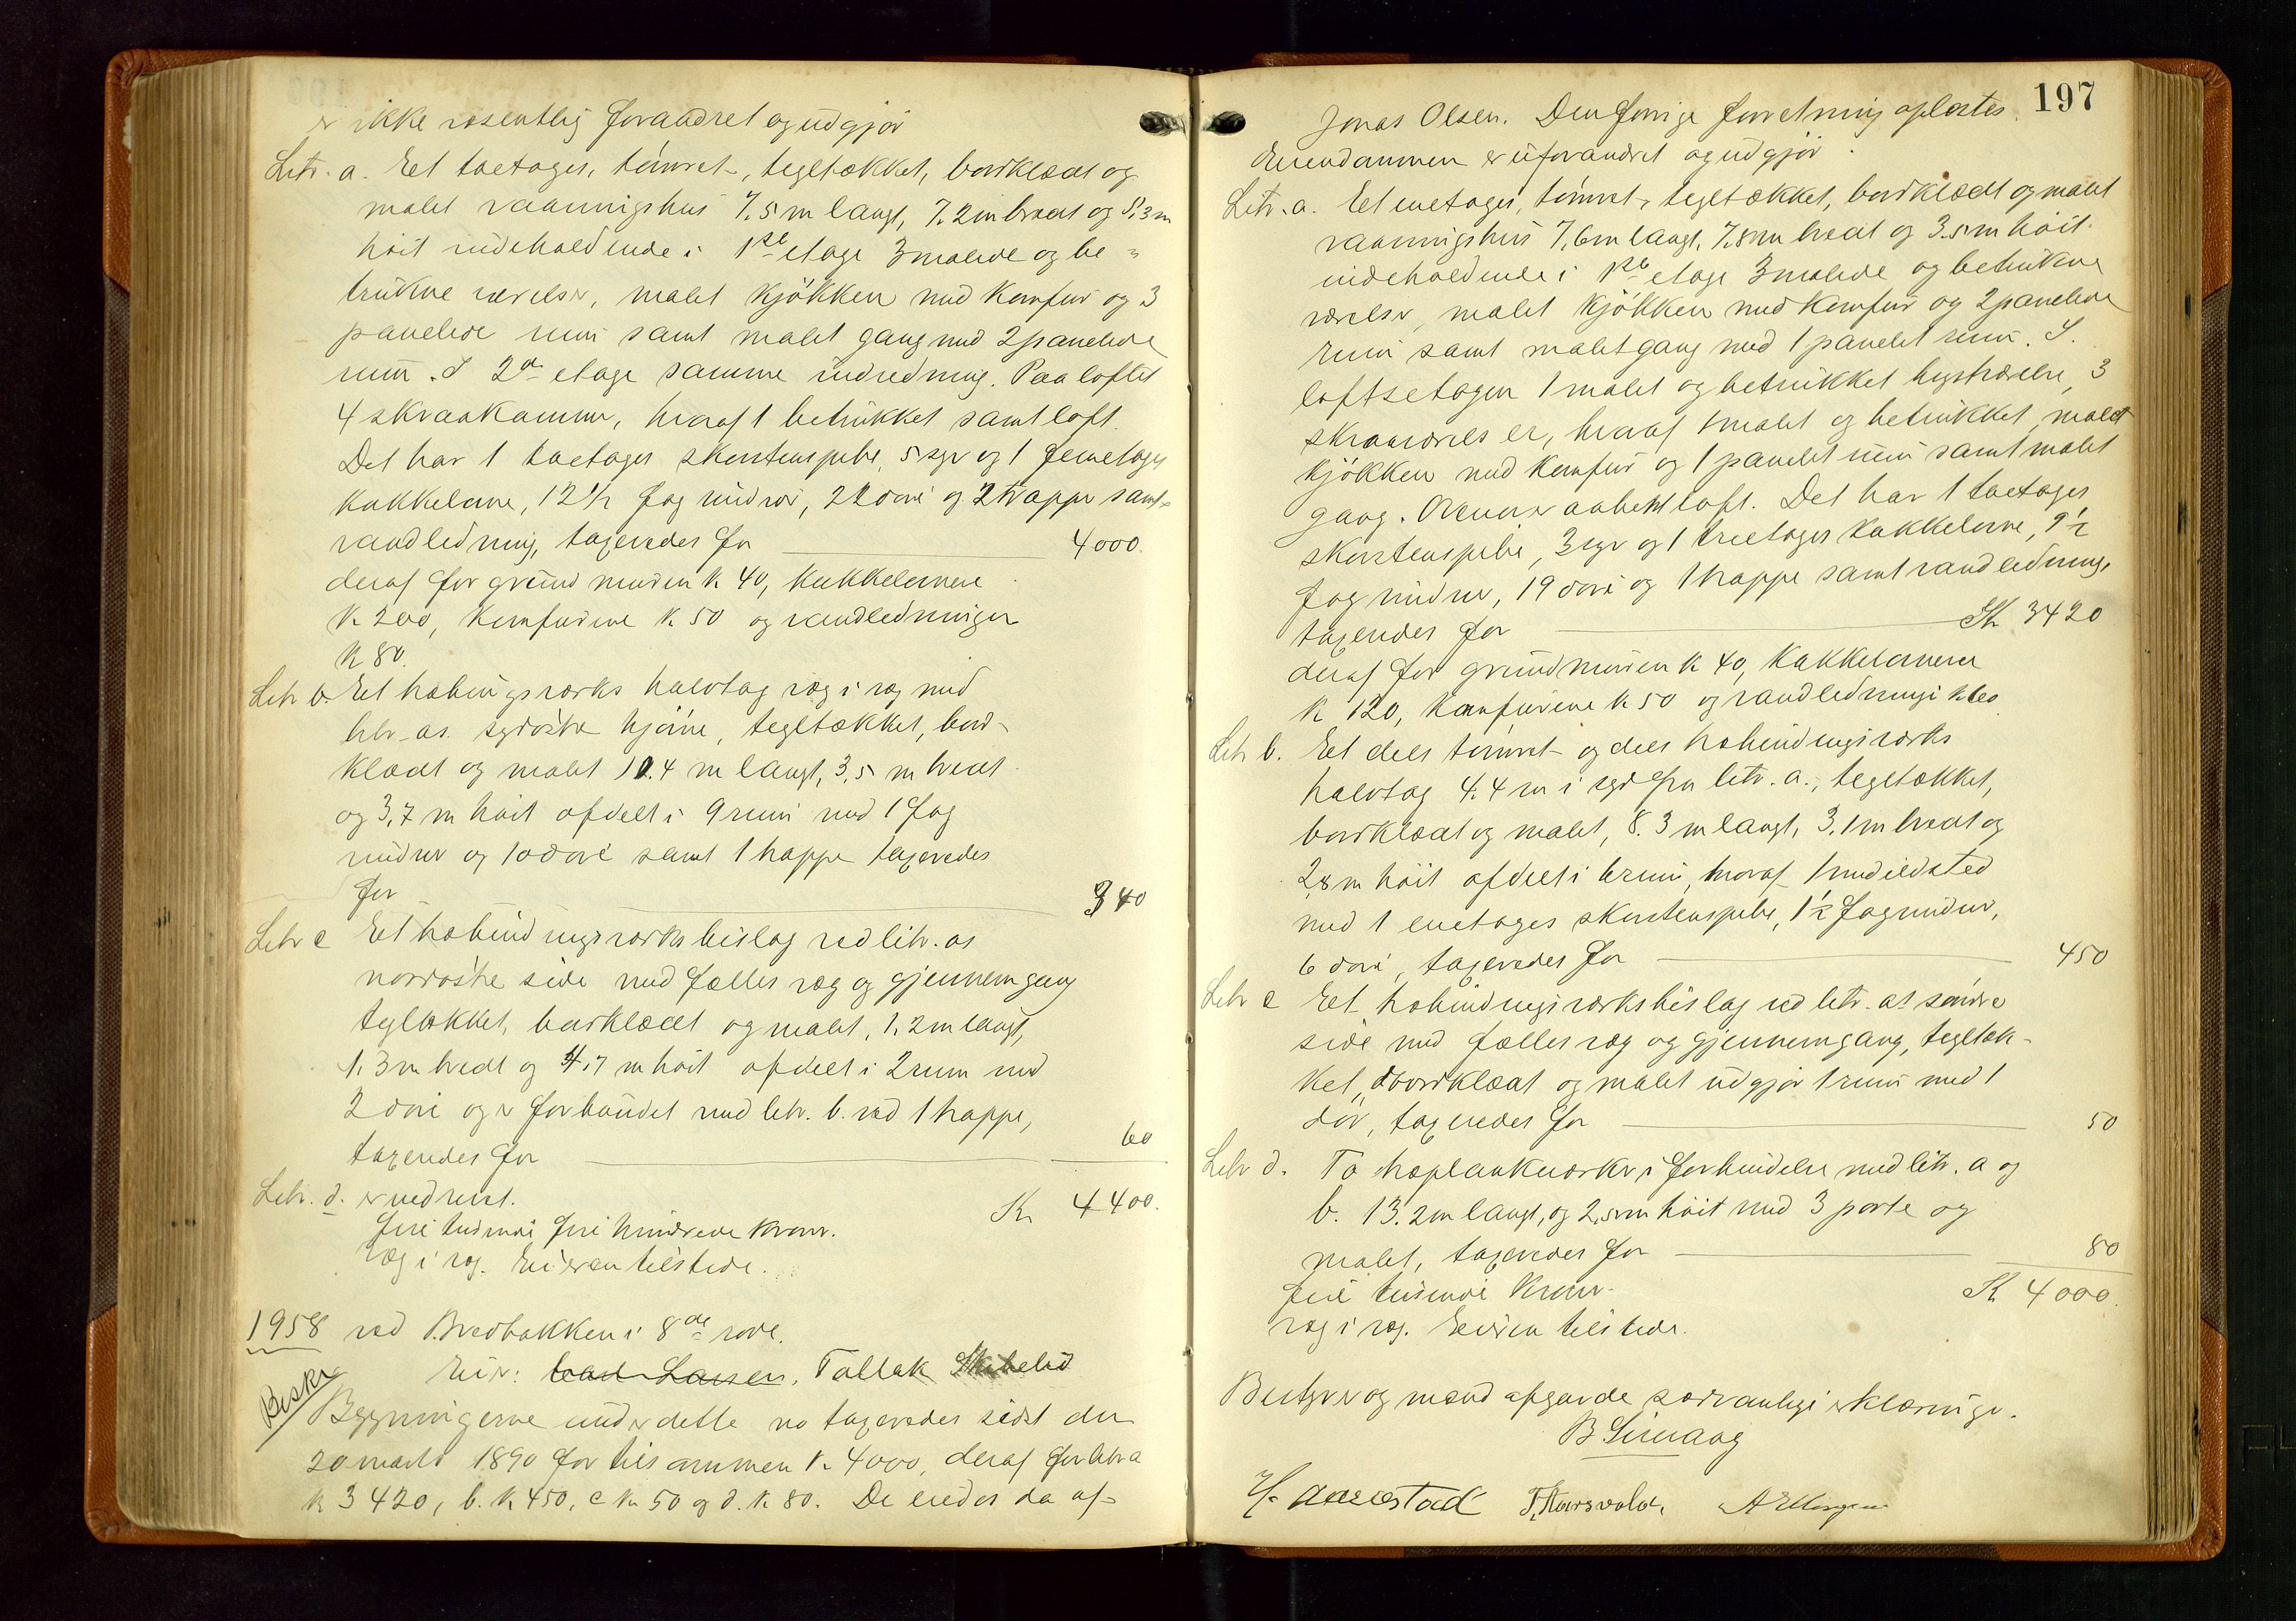 er ikke væsentlig forandret og udgjør
Litr. a. Et toetages, tømret, tegltækket, bordklædt og
malet vaaningshus 7.5 m langt, 7.2 m bredt og 8.3 m
høit indeholdende i 1ste etage 3 malede og be-
trukne værelser, malet kjøkken med komfur og 3
panelede rum samt malet gang med 2 panelede
rum. I 2den etage samme indredning. Paa loftet
4 skraakammer, hvoraf 1 betrukket samt loft.
Det har 1 toetages skorstenspibe, 5 syv og 1 femetages
kakkelovne, 12 1/2 fag vinduer, 22 døre og 2 trapper samt
vandledning, taxeredes for 4000.
deraf for grundmuren k 40, kakkelovnene
k 200, komfurene k 50 og vandledningen
k 80.
Litr b. Et bebindingsværks halvtag væg i væg med
litr. as sydøstre hjørne, tegltækket, bord-
klædt og malet 10.4 m langt, 3,5 m bredt
og 3,7 m høit afdelt i 9 rum med 1 fag
vinduer og 10 døre samt 1 trappe taxeredes
for 340
Litr c Et bebindingsværks bislag ved litr. as
nordøstre side med fælles væg og gjennemgang
tegltækket, bordklædt og malet, 1,2 m langt,
1,3 m bredt og 4,7 m høit afdelt i 2 rum med
2 døre og er forbundet med litr. b. ved 1 trappe,
taxeredes for 60
Litr. d. er nedrevet. Kr 4400.
fire tusinde fire hundrede kroner.
væg i væg. Eieren tilstede.
1958 ved Bredbakken i 8de rode.
Eier: Carl Larsen. Tallak
Beskr Bygningerne under dette no taxeredes sidst den
20 marts 1890 for tilsammen k 4000, deraf for litr a
k 3420, b. k 450, c k 50 og d. k 80. De eiedes da af
197
Jonas Olsen. Den forrige forretning oplæstes.
Eiendommen er uforandret og udgjør
Litr. a. Et enetages, tømret, tegltækket, bordklædt og malet
vaaningshus 7,6 m langt, 7,8 m bredt og 3.5 m høit
indeholdende i 1ste etage 3 malede og betrukne
værelser, malet kjøkken med komfur og 2 panelede
rum samt malet gang med 1 panelet rum. I
loftsetagen 1 malet og betrukket kvistværelse, 3
skraaværelser, hvoraf 1 malet og betrukket, malet
kjøkken med komfur og 1 panelet rum samt malet
gang. Ovenover aabent loft. Det har 1 toetages
skorstenspibe, 3 syv og 1 treetages kakkelovne, 9 1/2
fag vinduer, 19 døre og 1 trappe samt vandledning,
taxeredes for Kr 3420
deraf for grundmuren k 40, kakkelovnene
k 120, komfurene k 50 og vandledningen k 60
Litr b. Et dels tømret og dels bebindingsværks
halvtag 4.4 m i syd fra litr. a., tegltækket,
bordklædt og malet, 8.3 m langt, 3,1 m bredt og
2,8 m høit afdelt i 6 rum, hvoraf 1 med ildsted
med 1 enetages skorstenspibe, 1 1/2 fag vinduer,
6 døre, taxeredes for 450
Litr c Et bebindingsværks bislag ved litr. as søndre
side med fælles væg og gjennemgang, tegltæk-
ket, bordklædt og malet udgjør 1 rum med 1
dør, taxeredes for 50
Litr d. To træplankeværker i forbindelse med litr. a og
b. 13.2 m langt, og 2,5 m høit med 3 porte og
malet, taxeredes for 80
fire tusinde kroner. Kr 4000.
væg i væg. Eieren tilstede.
Bestyrer og mænd afgavde sædvanlige erklæringer.